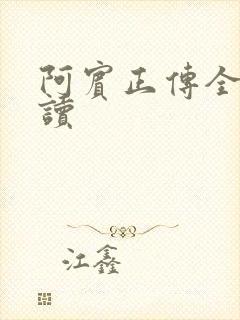 阿賓正傳全
讀
江鑫